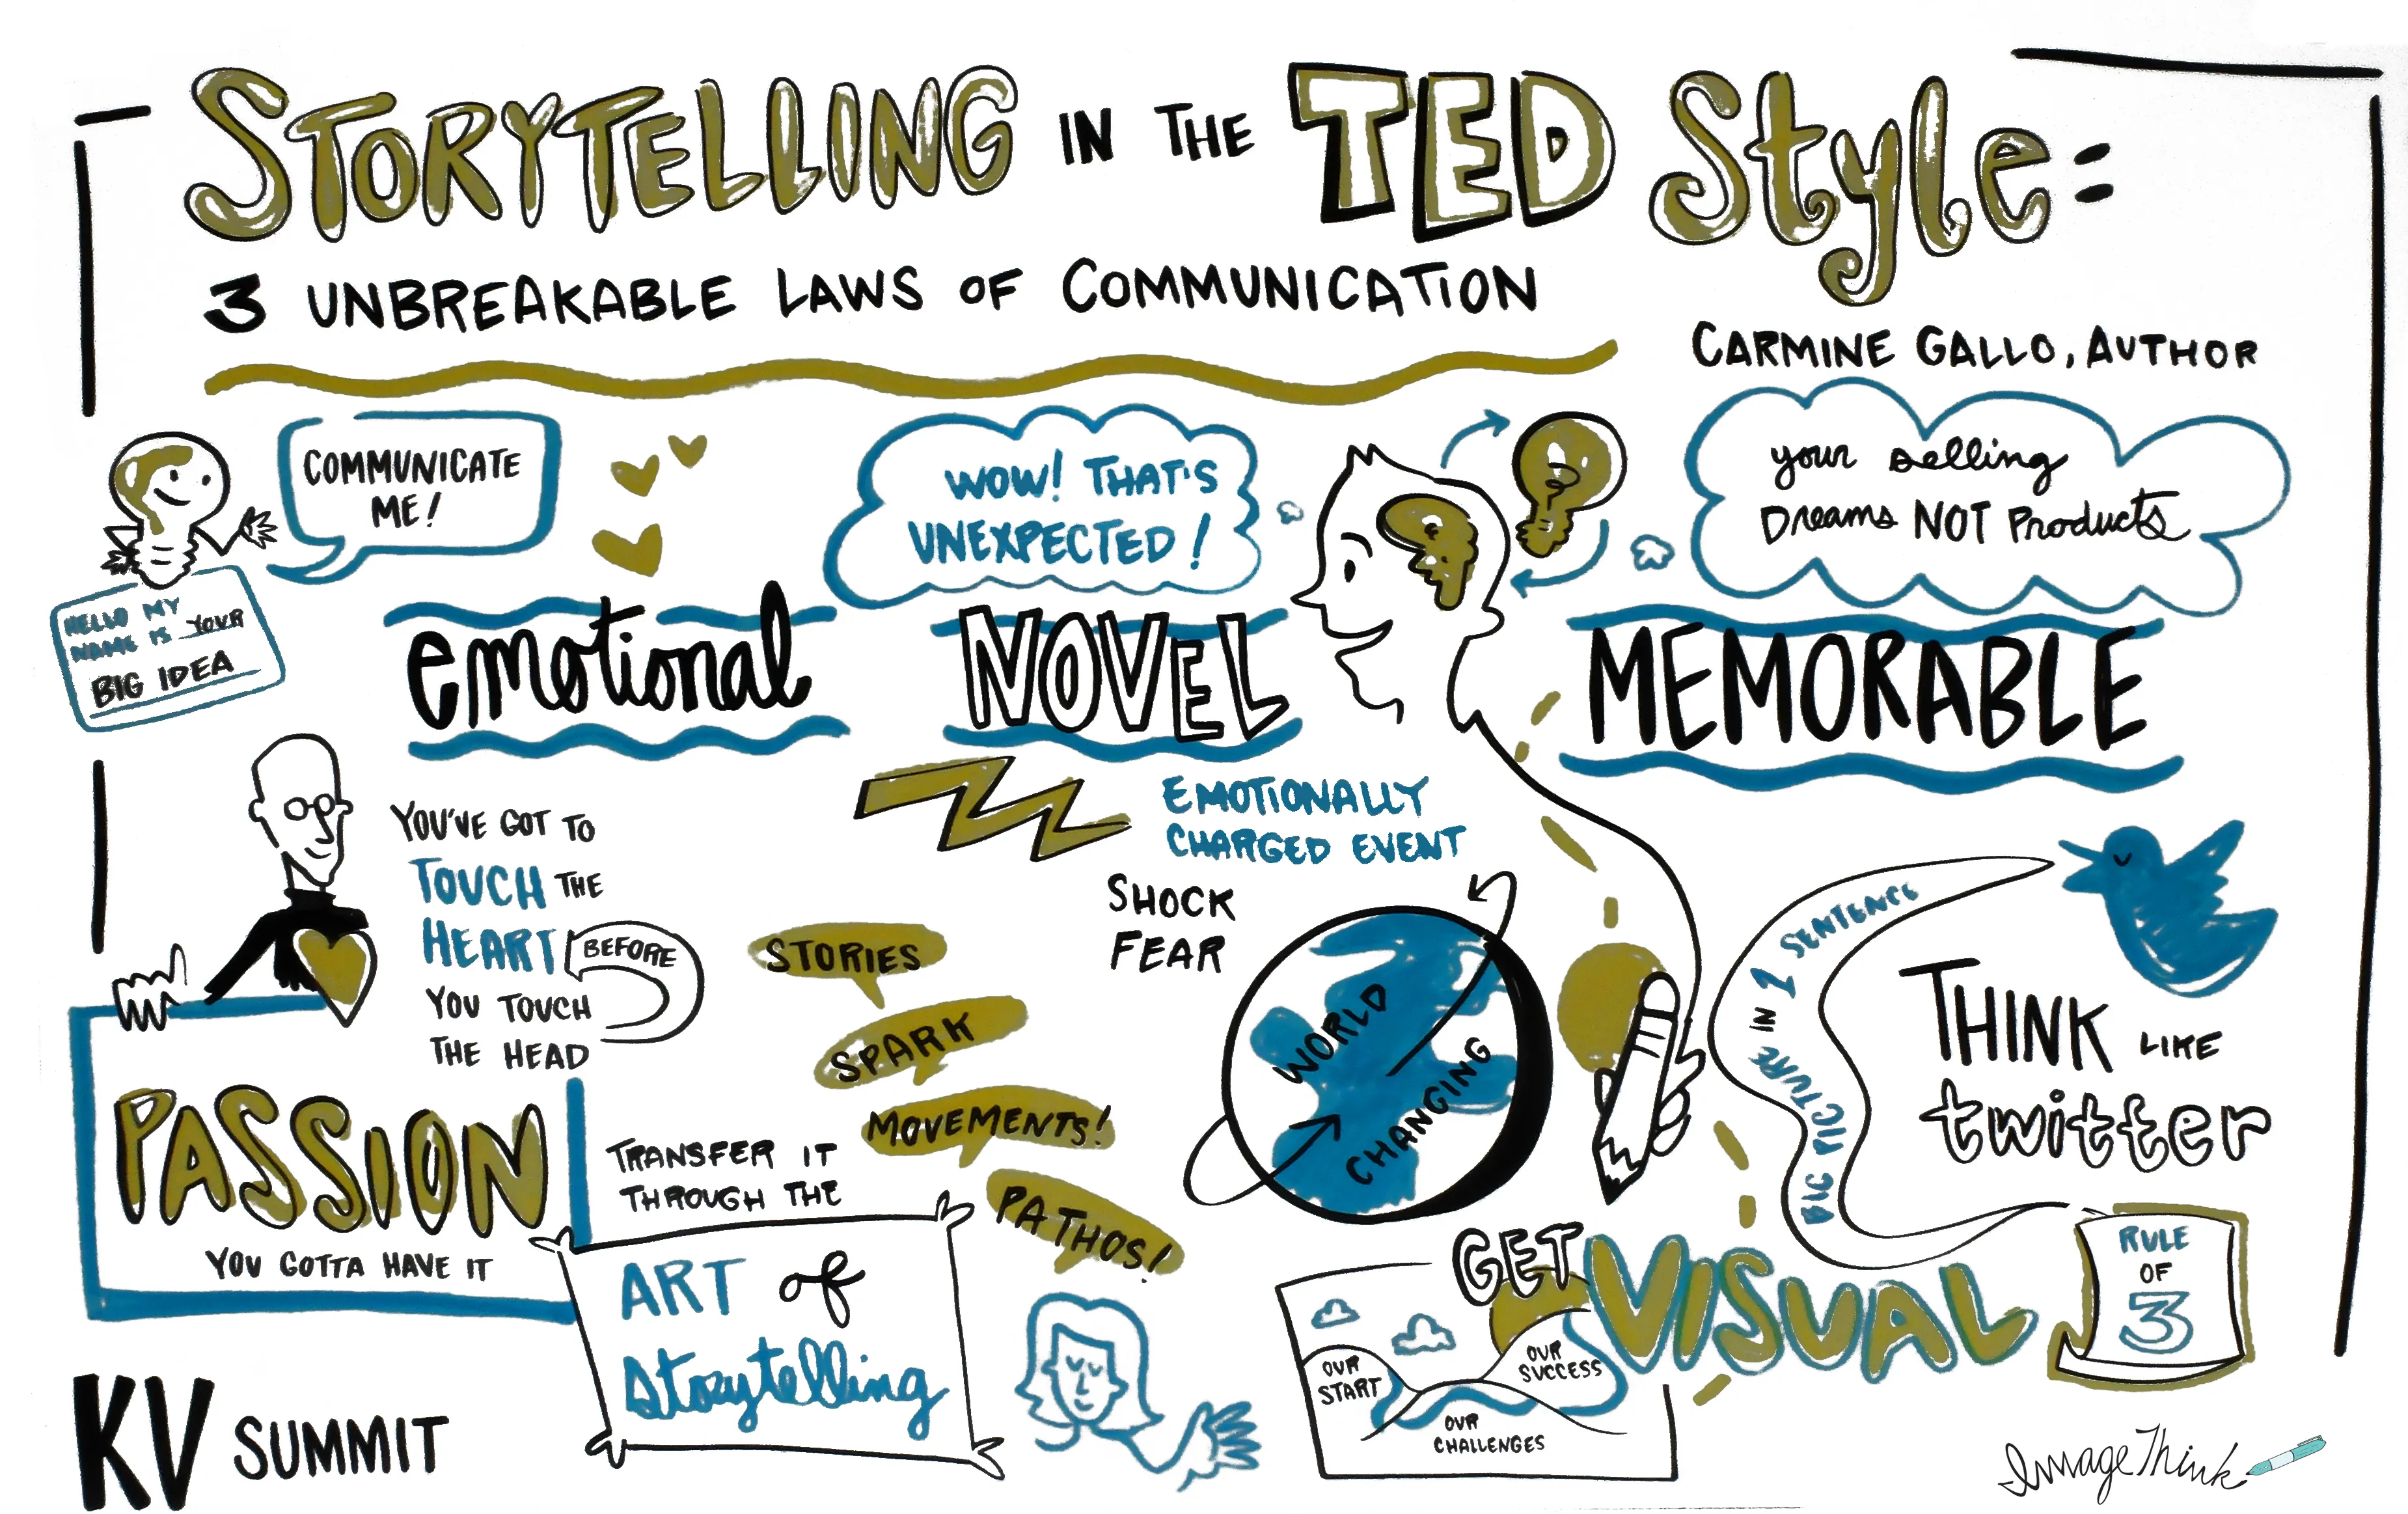 STORYTELLING IN THE TED Style:
3 UNBREAKABLE LAWS OF COMMUNICATION
CARMINE GALLO, AUTHOR
COMMUNICATE
ME!
HELLO MY
NAME IS YOUR
BIG IDEA
emotional
YOU'VE GOT TO
TOUCH THE
HEART BEFORE
YOU TOUCH
THE HEAD
PASSION
YOU GOTTA HAVE IT
TRANSFER IT
THROUGH THE
ART of
Storytelling
STORIES
SPARK
MOVEMENTS!
PATHOS!
WOW! THAT'S
UNEXPECTED!
NOVEL
EMOTIONALLY
CHARGED EVENT
SHOCK
FEAR
WORLD
CHANGING
your selling
Dreams NOT Products
MEMORABLE
BIG PICTURE IN 1 SENTENCE
THINK LIKE
twitter
RULE
OF
3
GET VISUAL
OUR
START
OUR
SUCCESS
OUR
CHALLENGES
KV SUMMIT
ImageThink